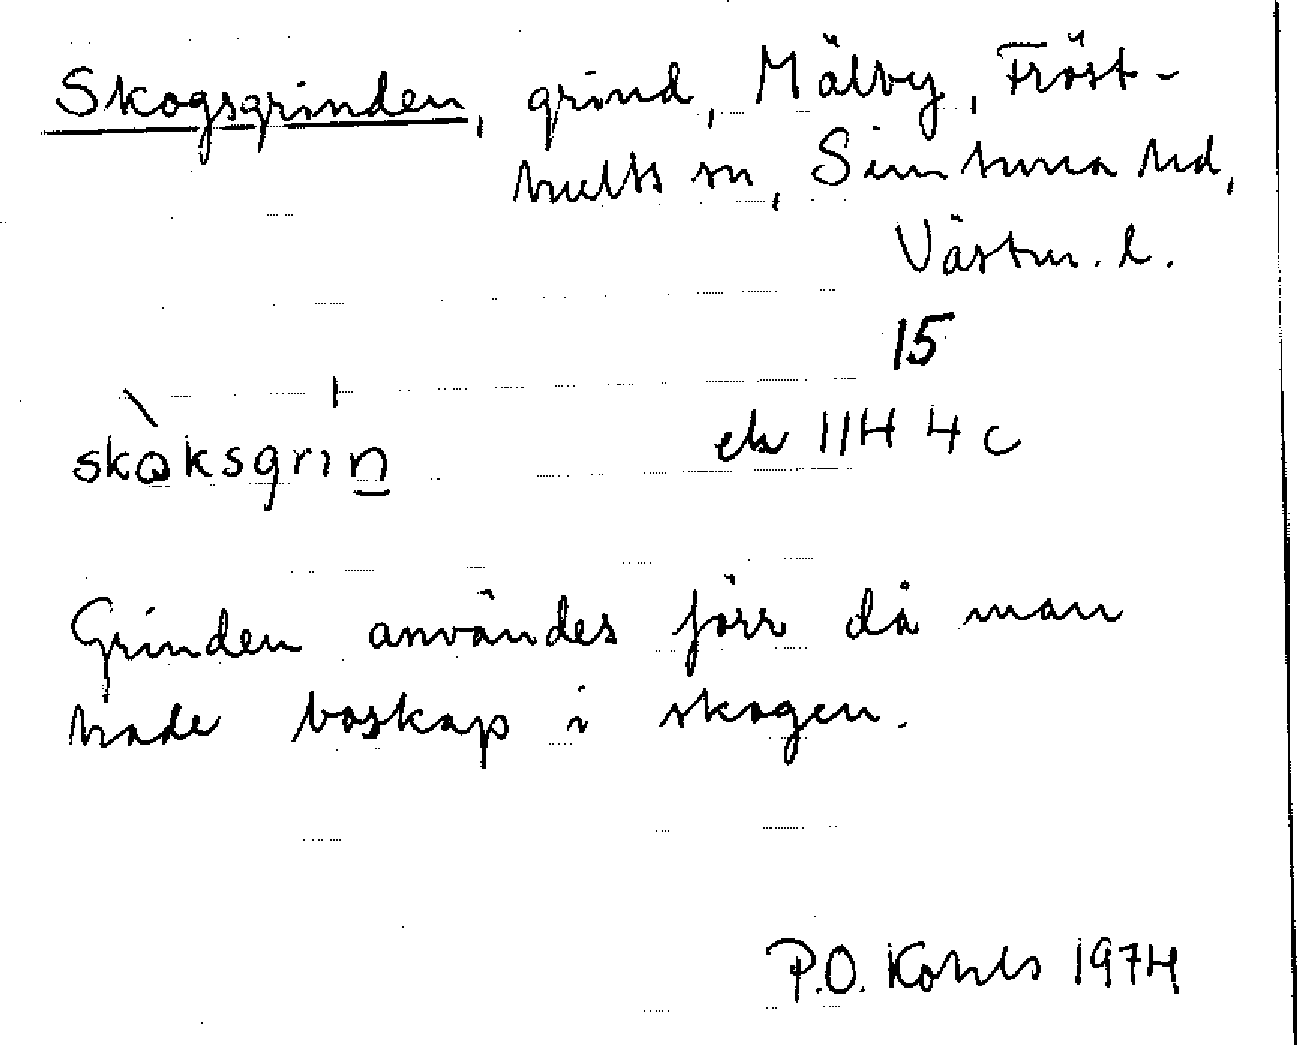 Skogsgrinden, grind, Mälby, Fröst-
hults sn, Simtuna hd,
Västm. l.
15
skòksgrin
ek 11H 4c
Grinden användes förr då man
hade boskap i skogen.
P.O. Kohls 1974